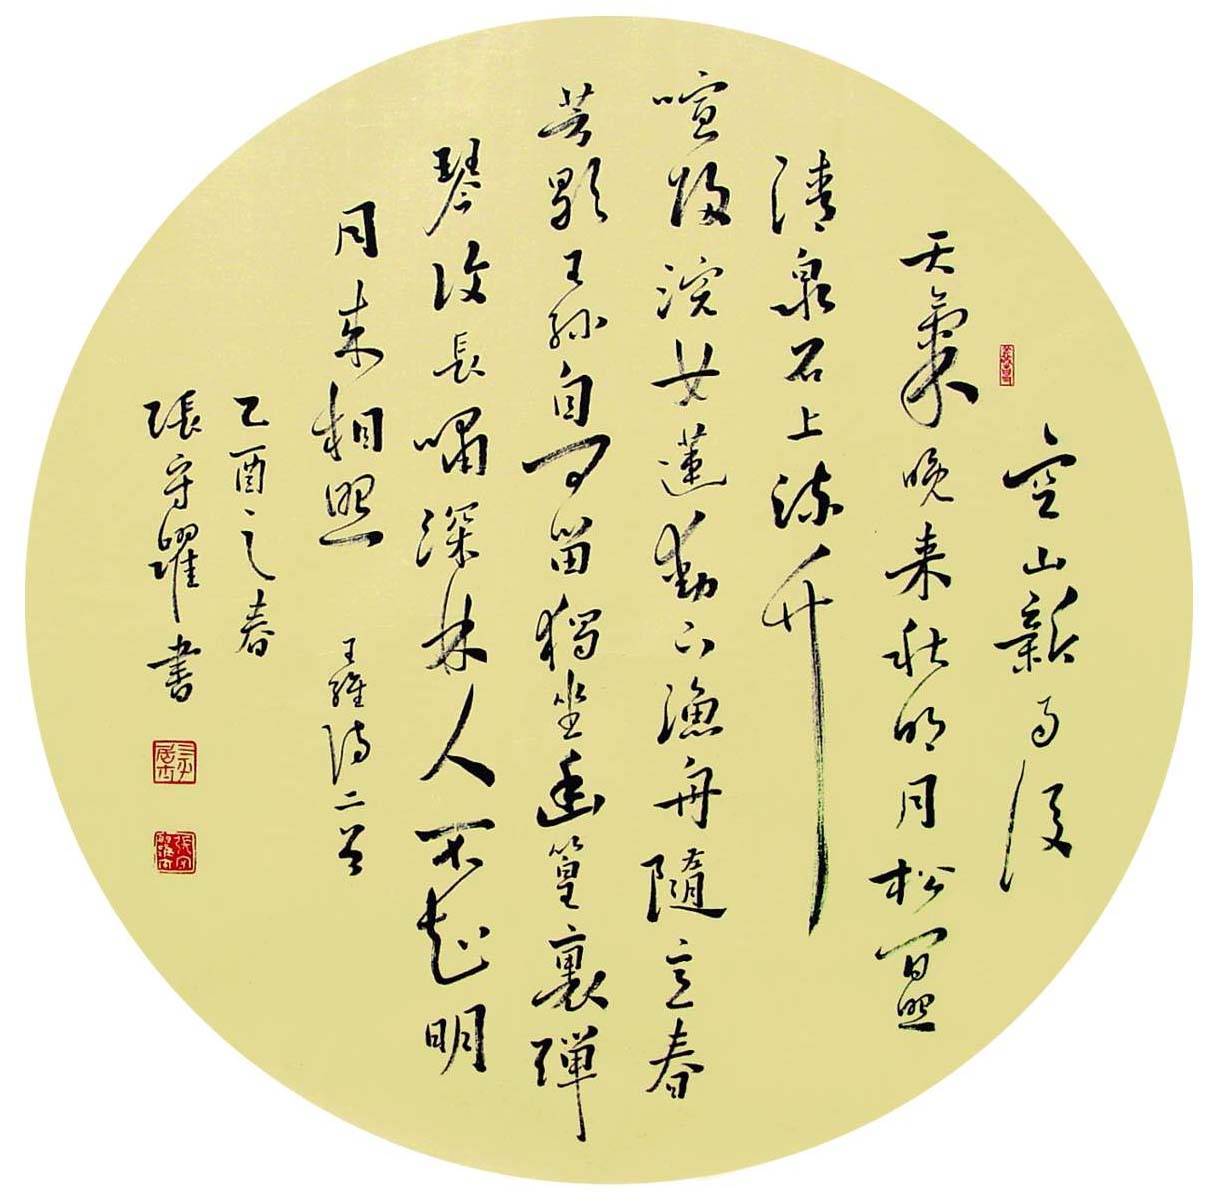 空山新雨後
天氣晚来秋明月松間照
清泉石上流竹
喧歸浣女蓮動下漁舟隨意春
芳歇王孫自可留獨坐幽篁裏彈
琴復長嘯深林人不知明
月来相照 王維詩二首
乙酉之春
張守躍書